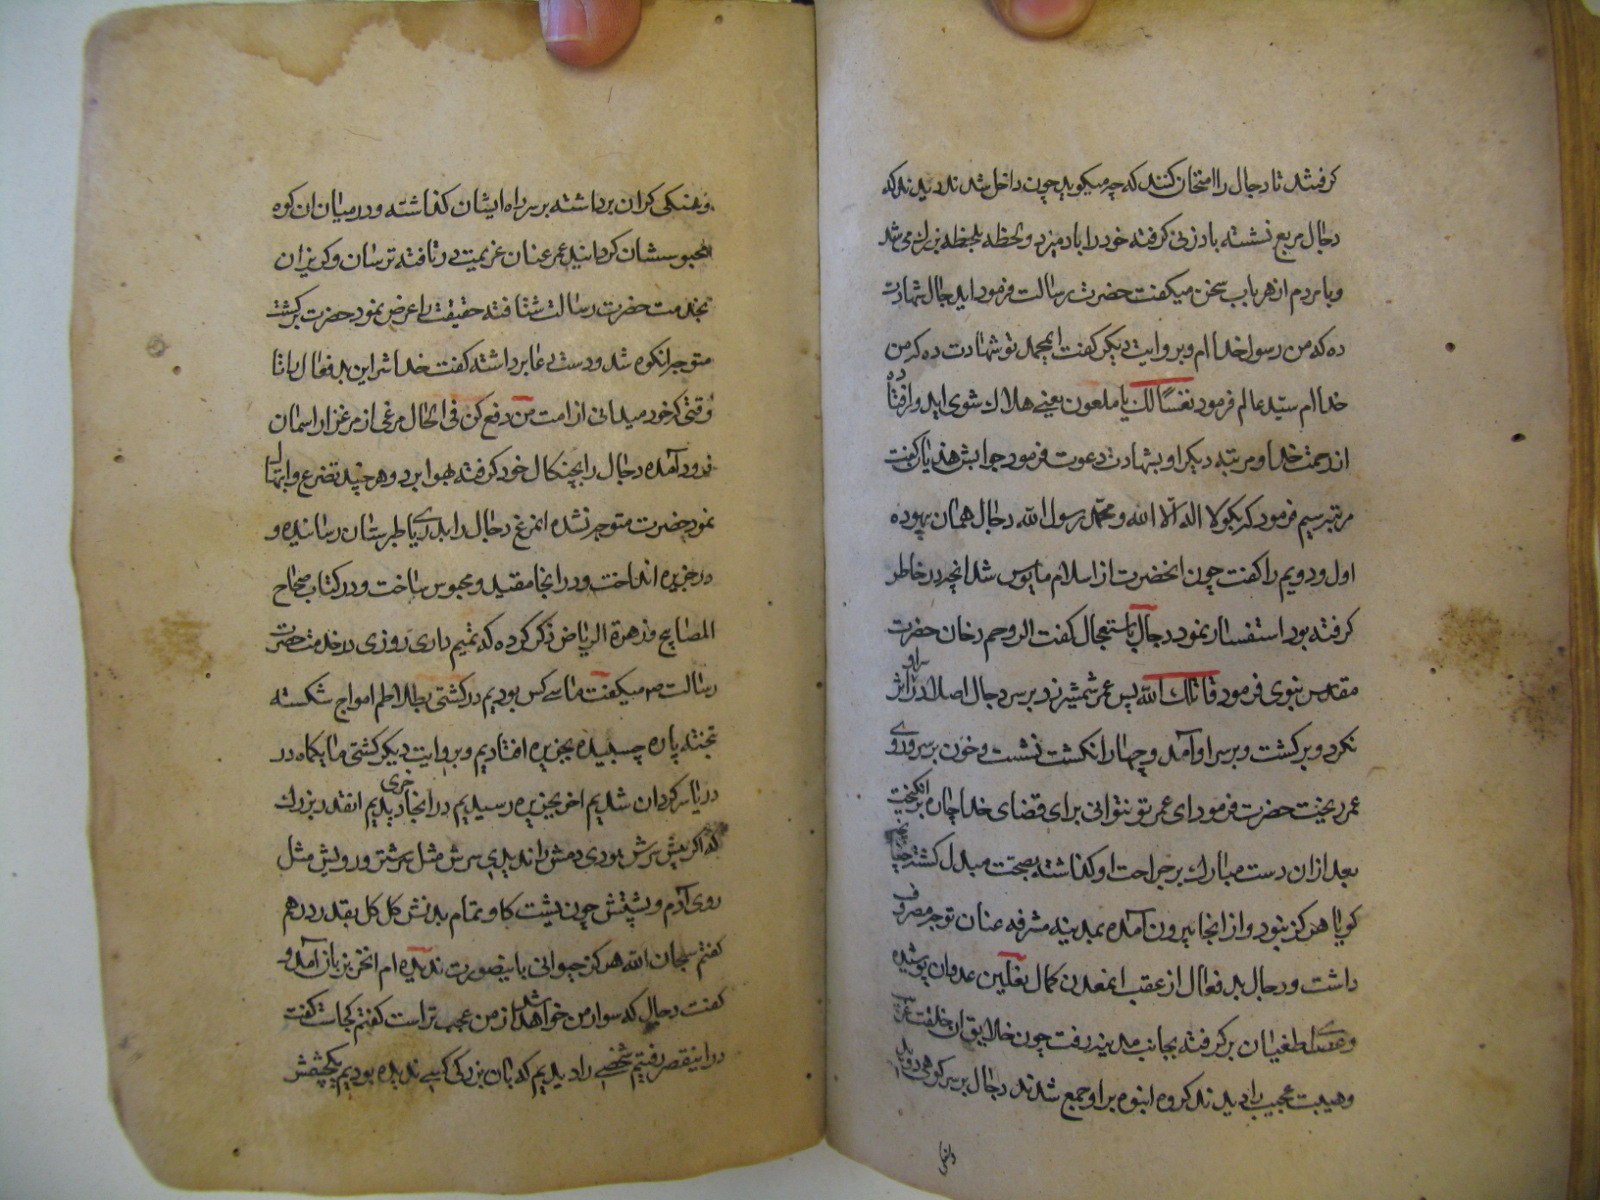 کرفتند تا دجال را امتحان کنند که چه میکوید چون داخل شدند دیدند که
دجال مربع نشسته بادزنی کرفته خود را باد میزد و لحظه بلحظه بزرك می شد
و با مردم از هر باب سخن میکفت حضرت رسالت فرمود ایدجال شهادت
ده که من رسول خدا ام و بروایت دیکر کفت ایمحمد تو شهادت ده که من
خدا ام سید عالم فرمود تعسًا لك یا ملعون یعنی هلاك شوی اید ور افتاده
از رحمت خدا و مرتبه دیکر او بشهادت دعوت فرمود جوابش هذیان کفت
مرتبه سیم فرمود که بکو لا اله الا الله و محمد رسول الله دجال همان بیهوده
اول و دویم را کفت چون انحضرت از اسلام مایوس شد انچه در خاطر
کرفته بود استفسار نمود دجال باستعجال کفت الروحم دخان حضرت
مقدس نبوی فرمود قاتلك الله پس عمر شمشیر زد بر سر دجال اصلا در او اثر
نکرد و برکشت و بر سر او آمد و چهار انکشت نشست و خون بر سر و روی
عمر ریخت حضرت فرمود ای عمر تو نتوانی برای قضای خدا چاره برانکیخت
بعد از ان دست مبارك بر جراحت او کذاشته بصحت مبدل کشت چنانچه
کویا هرکز نبود و از انجا بیرون آمده بمدینه مشرفه عنان توجه مصروف
داشت و دجال بد فعال از عقب انمعدن کمال نعلین عدوان پوشیده
و عصا طغیان برکرفته بجانب مدینه رفت چون خلایق ان خلقت غریب
و هیبت عجیب را دیدند کروه انبوه بر او جمع شدند دجال بر سر کوهی دوید
و سنکی کران برداشته بر سر راه ایشان کذاشته و در میان ان کوه
محبوسشان کردانید عمر عنان عزیمت بر تافته ترسان و کریزان
بخدمت حضرت رسالت شتافته حقیقت را عرض نمود حضرت برکشت
متوجه انکوه شد و دست دعا برداشته کفت خدا شر این بد فعال را تا
وقتی که خود میدانی از امت من دفع کن فی الحال مرغی از مرغزار اسمان
فرود آمده دجال را بچنکال خود کرفته بهوا برد و هر چند تضرع و ابتهال
نمود حضرت متوجه نشده انمرغ دجال را بدریا طبرستان رسانیده و
در جزیره انداخت و در انجا مقید و محبوس ساخت و در کتاب صحاح
المصابیح و زهرة الریاض ذکر کرده که تمیم داری روزی در خدمت حضرت
رسالت ص میکفت ما سی کس بودیم در کشتی بطلاطم امواج شکسته
تخته پاره چسبیده بجزیره افتادیم و بروایت دیکر کشتی ما یکماه در
دریا سرکردان شدیم اخر بجزیره رسیدیم در انجا خری دیدیم انقدر بزرك
که اکر پیش سرش بودی دمش را ندیدی سرش مثل سر شتر و رویش مثل
روی آدم و پشتش چون پشت کاو و تمام بدنش کل کل بقدر درهم
کفتم سبحان الله هرکز حیوانی باینصورت ندیده ام انخر بزبان آمد و
کفت دجال که سوار من خواهد شد از من عجب تر است کفتم کجاست کفت
در اینقصر رفتیم شخصی را دیدیم که بان بزرکی کسی ندیده بودیم یکچشمش